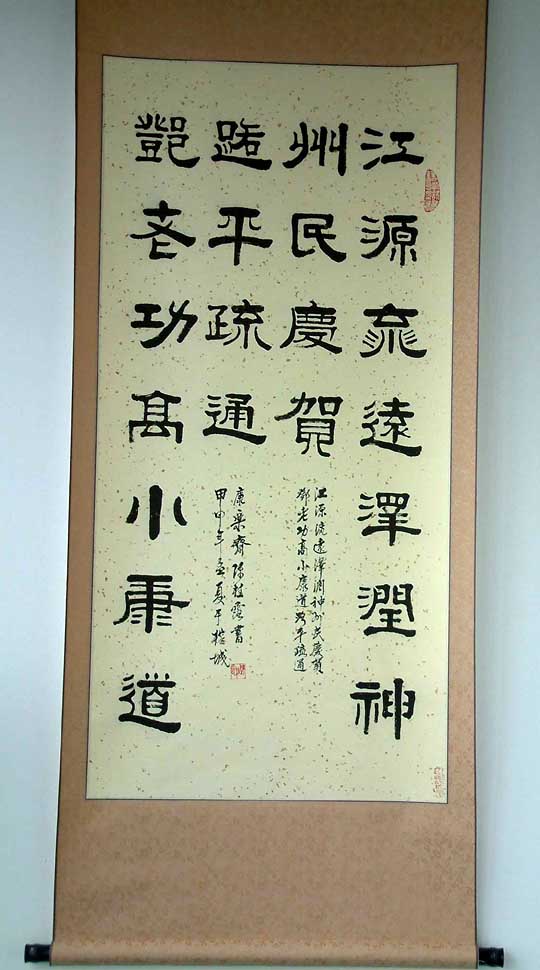 江源流遠澤潤神
州民慶賀
鄧老功高小康道
路平疏通
江源流遠澤潤神州民慶賀
鄧老功高小康道路平疏通
康樂齋陳書
甲申年孟夏于榕城